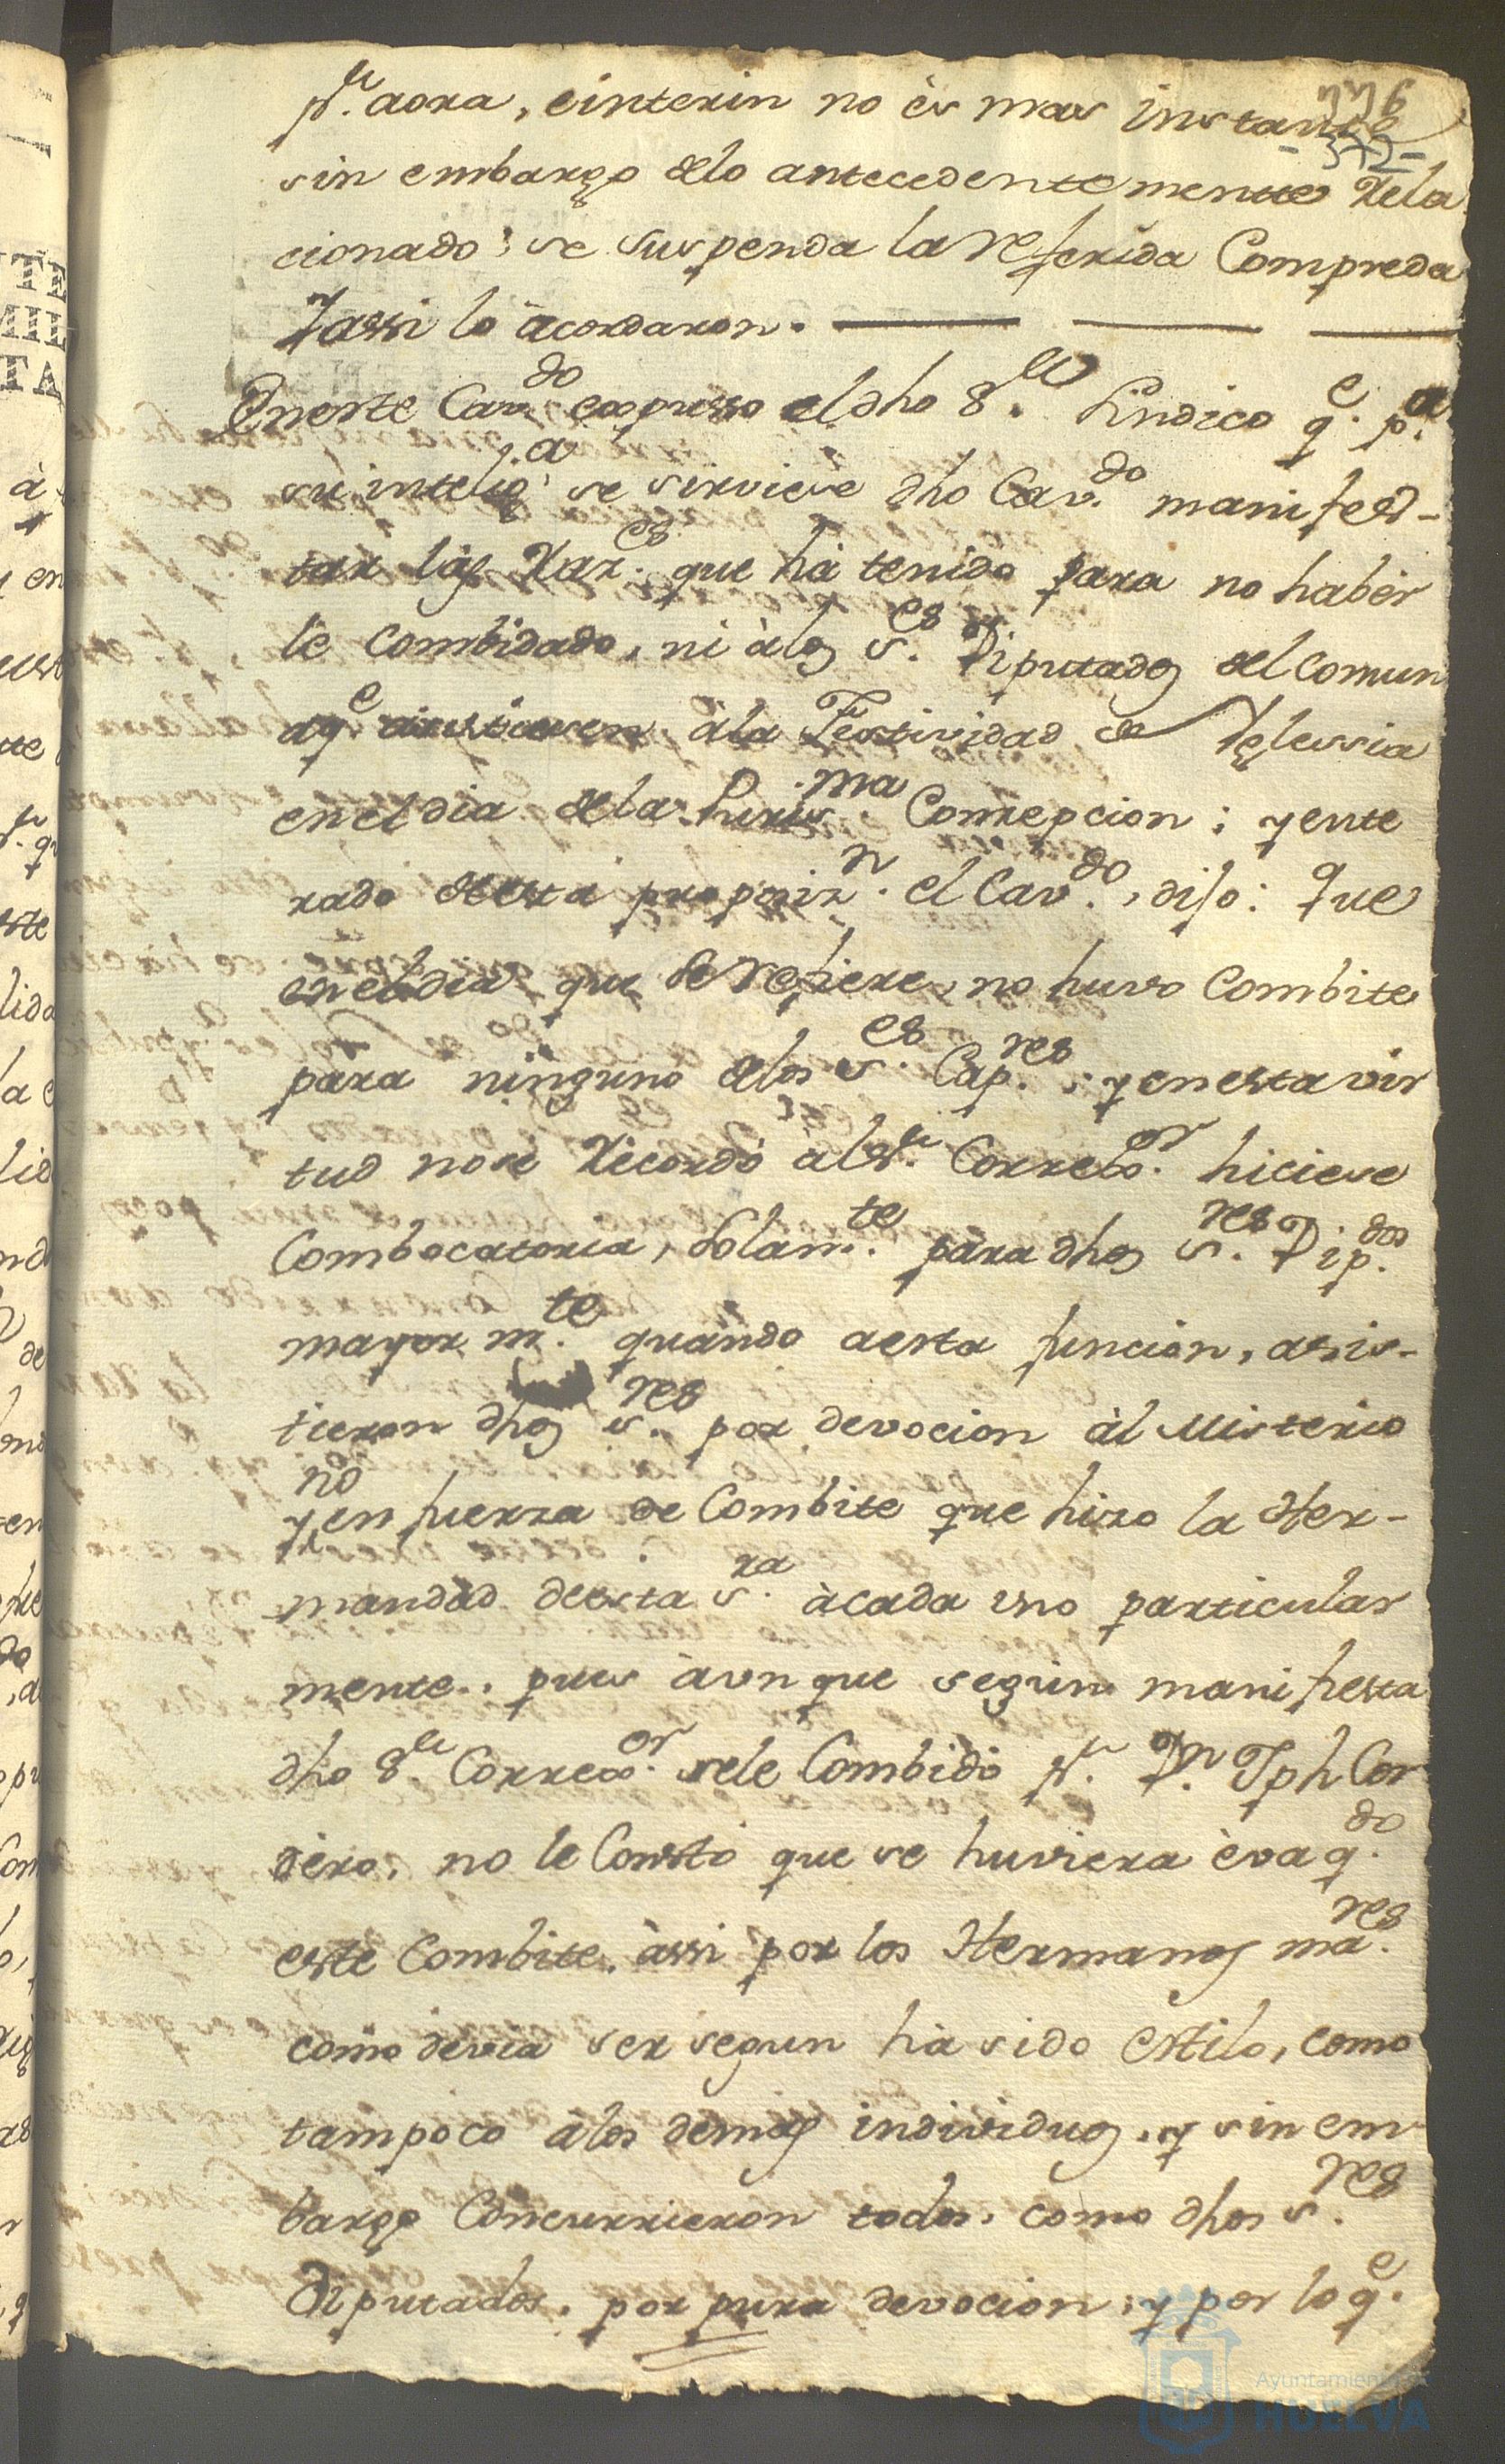 446
-372-
pr. aora, einterin no ès mas instante
sin embargo delo antecedentemente Rela
cionado, se suspenda la referida Compreda
Y assi lo àcordaron.
Eneste Cavdo. expusso el dho Sr. Sindico qe. pa.
su inteliga. se sirviese dho Cavdo. manifes-
tar las Razes. que hà tenido para no haber
le combidado, ni àlos ses. Diputados del comun
aqe asistiesen àla Festividad de Yglessia
enel dia dela Puris.ma Concepcion; y ente
rado deesta propoizn. el Cavdo., dijo: Que
enel dia que se refiere, no huvo Combite
para ninguno delos ses. Capres. y enesta vir
tud nose Recordò àl sr. Correxor. hiciese
Combocatoria, Solamte. para dhos sres. Dipdos.
mayormte. quando aesta funcion, assis-
tieron dhos sres. por devocion àl Misterio
no
y en fuerza de Combite que hizo la Her-
mandad deesta sra. àcada uno particular
mente. pues àunque segun manifiesta
dho Sr. Correxor. sele Combidò pr. Dn. Jph Cor
dero, no le Constò que se huviera èvaqdo.
este Combite. àssi por los Hermanos mares.
como devia ser segun hà sido estilo, como
tampoco àlos demas individuos, y sin em-
bargo Concurrieron todos, como dhos sres.
Diputados, por pura devocion, y por loqe.
à
en
te
este
lido
la
de
en
Ayuntamiento de
HUELVA